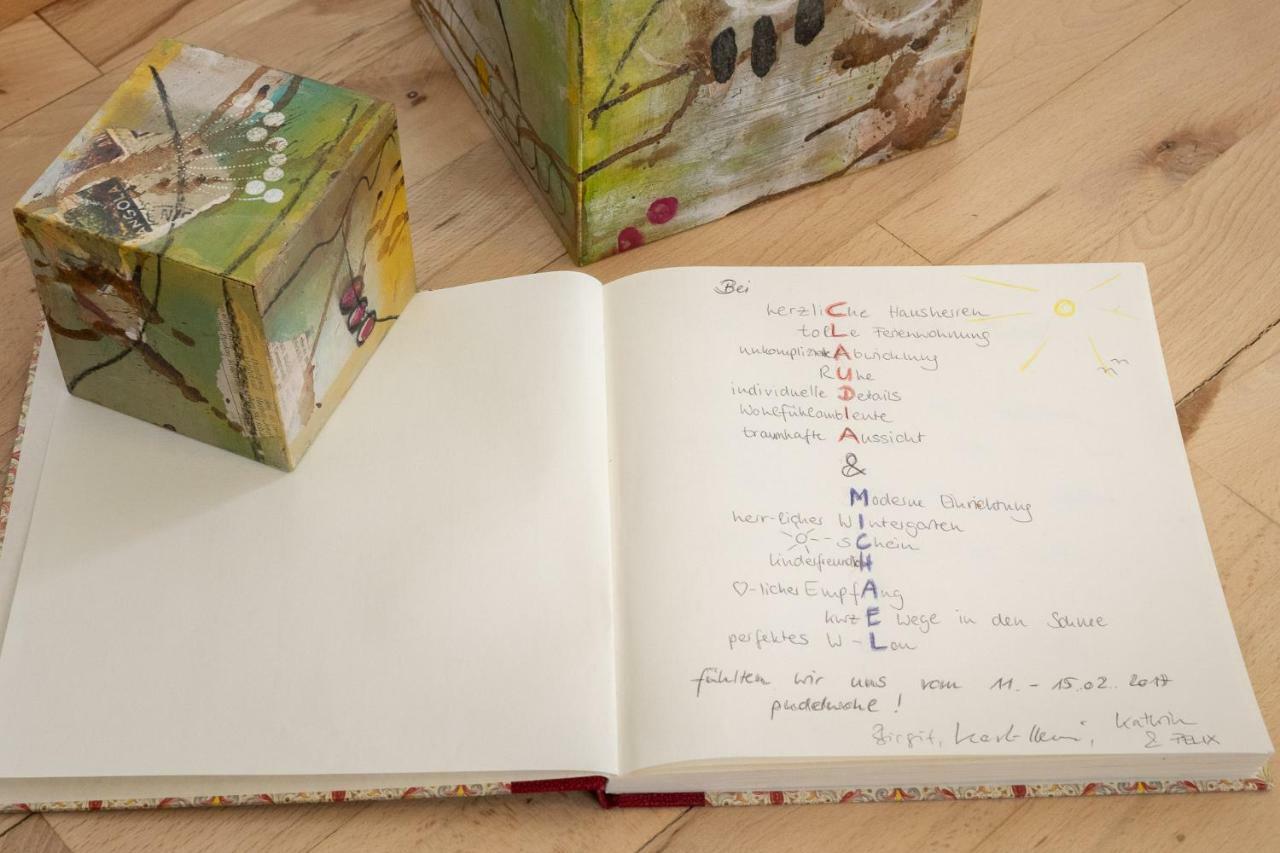 Bei
herzliche Hausherren
tolle Ferienwohnung
unkomplizierte Abwicklung
Ruhe
individuelle Details
Wohlfühlambiente
traumhafte Aussicht
&
Moderne Einrichtung
herr-licher Wintergarten
schein
kinderfreundlich
♡-licher Empfang
kurze Wege in den Schnee
perfektes W-Lan
fühlten wir uns vom 11. - 15.02. 2017
pudelwohl !
Birgit, Karl-Heinz, Kathrin
& FELIX